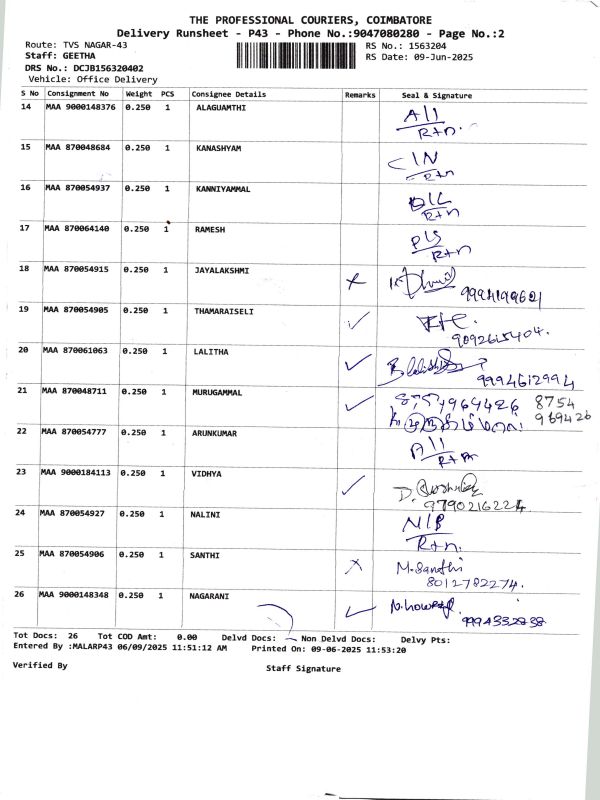 THE PROFESSIONAL COURIERS, COIMBATORE
Delivery Runsheet - P43 - Phone No.:9047080280 - Page No.:2
Route: TVS NAGAR-43 RS No.: 1563204
Staff: GEETHA RS Date: 09-Jun-2025
DRS No.: DCJB156320402
Vehicle: Office Delivery
S No Consignment No Weight PCS Consignee Details Remarks Seal & Signature
14 MAA 9000148376 0.250 1 ALAGUAMTHI A/1
R+n.
15 MAA 870048684 0.250 1 KANASHYAM C/N
R+n
16 MAA 870054937 0.250 1 KANNIYAMMAL D/L
R+n
17 MAA 870064140 0.250 1 RAMESH P/S
R+n
18 MAA 870054915 0.250 1 JAYALAKSHMI ✗
19 MAA 870054905 0.250 1 THAMARAISELI ✓
9092615404.
20 MAA 870061063 0.250 1 LALITHA ✓
9994612994
21 MAA 870048711 1 0.250 MURUGAMMAL ✓ 8754
969426
22 MAA 870054777 0.250 1 ARUNKUMAR A/1
R+n
23 MAA 9000184113 0.250 1 VIDHYA ✓
9790216224.
24 MAA 870054927 0.250 1 NALINI N/B
R+n.
25 MAA 870054906 0.250 1 SANTHI ✗ M.Santhi
8012782274.
26 MAA 9000148348 0.250 1 NAGARANI ✓
9994332838
Tot Docs: 26 Tot COD Amt: 0.00 Delvd Docs: Non Delvd Docs: Delvy Pts:
Entered By :MALARP43 06/09/2025 11:51:12 AM Printed On: 09-06-2025 11:53:20
Verified By Staff Signature